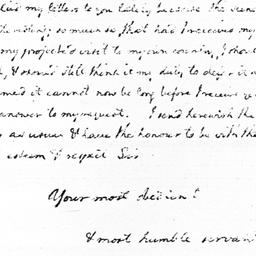 my letters to you lately because the
so much so, that had I received my
my projected visit to my own country, I should
& should still think it my duty to defer it
it cannot now be long before I receive
answer to my request. I send herewith the
as usual & have the honour to be with the
esteem & respect Sir
Your most obedient
& most humble servant